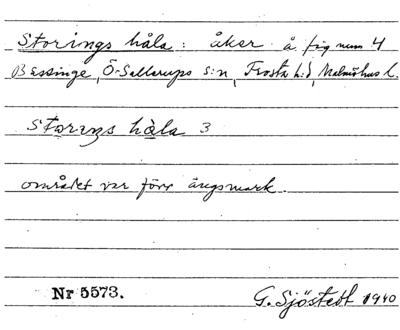 Storings håla : åker å fig num 4
Bessinge, Ö-Sallerups s:n, Frosta h:d, Malmöhus l.
Storings håla 3
området var förr ängsmark.
Nr 5573. G. Sjöstedt 1940